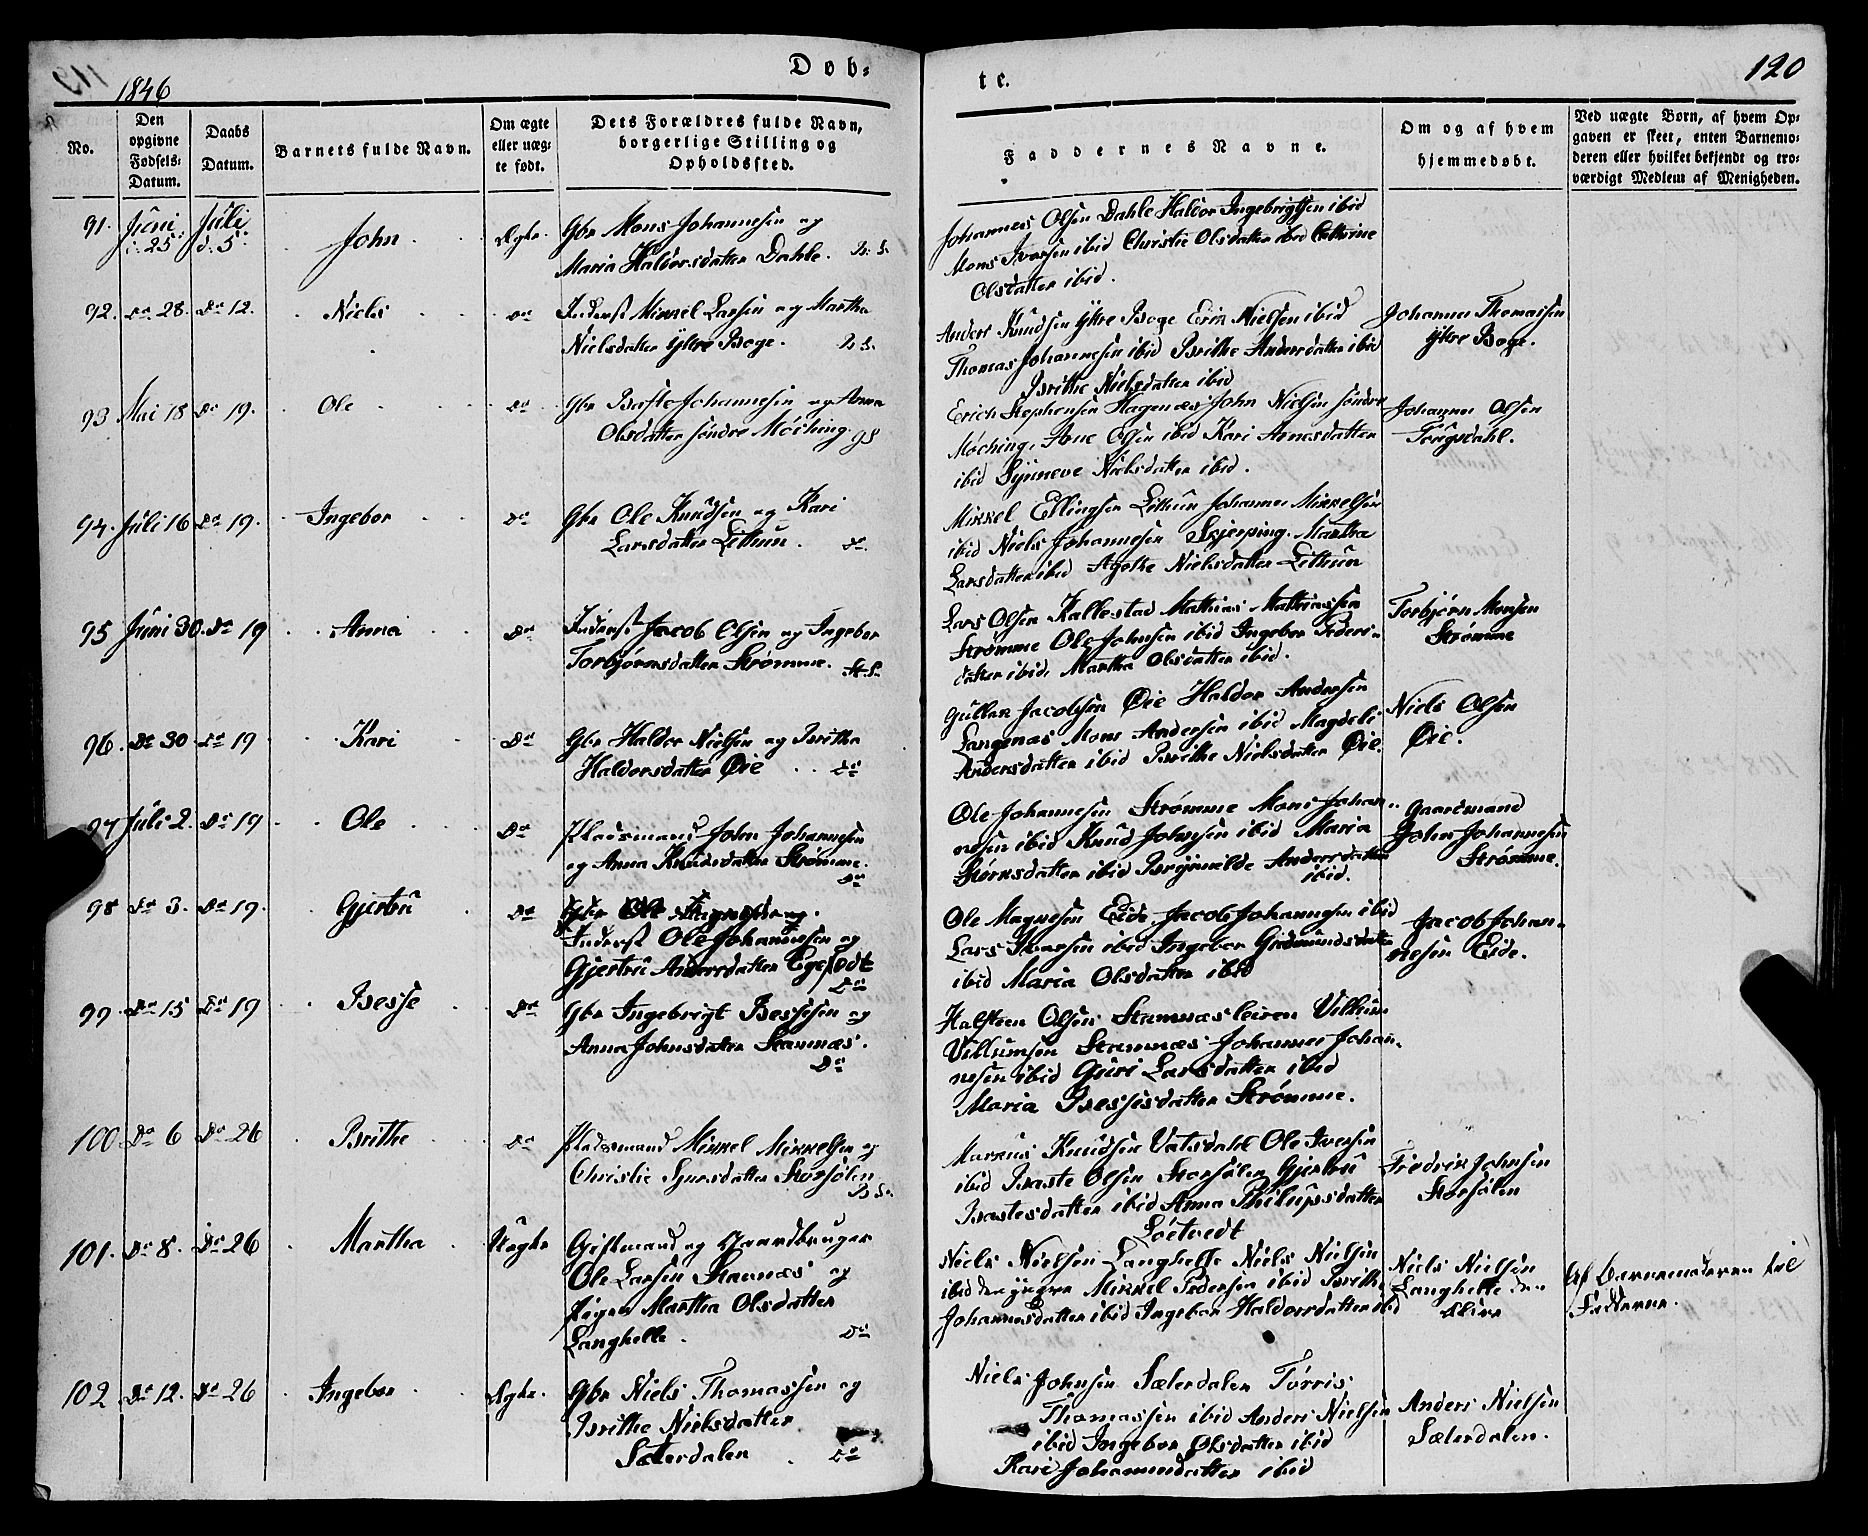 1846
Døb-
te.
120
No.
Den opgivne Fødsels-Datum.
Daabs Datum.
Barnets fulde Navn.
Om ægte eller uægte født.
Dets Forældres fulde Navn, borgerlige Stilling og Opholdsted.
Faddernes Navne.
Om og af hvem hjemmedøbt.
Ved uægte Børn, af hvem Opgaven er skeet, enten Barnemoderen eller hvilket bekjendt og troværdigt Medlem af Menigheden.
91. Juni d. 25 Juli d. 5 John Ægte.
Gbr Mons Johannesen og
Maria Haldorsdatter Dahle.
Johannes Olsen Dahle Haldor Ingebrigtsen ibid
Mons Iversen ibid Christie Olsdatter ibid Cathrine
Olsdatter ibid.
92. Do 28. Do 12. Niels Do
Inderst Mikkel Larsen og Martha
Nielsdatter Ytre Boge.
Anders Knudsen Ytre Boge Erik Nielsen ibid
Thomas Johannesen ibid Brithe Andersdatter ibid
Brithe Nielsdatter ibid
Johannes Thomassen
Ytre Boge.
93 Mai 18 Do 19. Ole Do
Gbr Baste Johannesen og Anna
Olsdatter søndre Møching.
Erich Stephensen Hagenæs John Nielsen søndre
Møching, Arne Olsen ibid Kari Arnesdatter
ibid Synneve Nielsdatter ibid.
Johannes Olsen
94. Juli 16 Do 19. Ingebor Do
Gbr Ole Knudsen og Kari
Larsdatter Littun. Do.
Mikkel Ellingsen Littun Johannes Mikkelsen
ibid Niels Johannesen Skjerping. Martha
Larsdatter ibid Agathe Nielsdatter Littun
95 Juni 30. Do 19 Anna Do
Inderst Jacob Olsen og Ingebor
Torbjørnsdatter Strømme.
Lars Olsen Kallestad Mathias Mathiassen
Strømme Ole Johnsen ibid Ingebor Peders-
datter ibid, Martha Olsdatter ibid.
Torbjørn Monsen
Strømme
96. Do 30 Do 19 Kari Do
Gbr Haldor Nielsen og Brithe
Haldorsdatter Øie Do
Gullak Jacobsen Øie Haldor Andersen
Langenæs Mons Andersen ibid Magdeli
Andersdatter ibid Brithe Nielsdatter Øie.
Niels Olsen
Øie.
97 Juli 2. Do 19 Ole Do
Pladsmand John Johannesen
og Anna Knudsdatter Strømme.
Do
Ole Johannesen Strømme Mons Johan-
nesen ibid Knud Johnsen ibid Maria
Størksdatter ibid Brynnilde Andersdatter
ibid.
Gaardmand
John Johannesen
Strømme.
98 Do 3. Do 19. Gjertru Do
Inderst Ole Johannesen og
Gjertru Andersdatter
Do
Ole Magnesen Eide, Jacob Johannesen ibid
Lars Iversen ibid Ingebor Gudmundsdatter
ibid Maria Olsdatter ibid
Jacob Johan-
nesen Eide.
99 Do 15 Do 19 Besse Do
Gbr Ingebrigt Bessesen og
Anna Johnsdatter Stamnæs.
Do
Halsteen Olsen Stamnæsleiren Villum
Villumsen Stamnæs Johannes Johan-
nesen ibid Guri Larsdatter ibid
Maria Bessesdatter Strømme.
100. Do 6 Do 26 Brithe Do
Pladsmand Mikkel Mikkelsen og
Christie
Markus Knudsen Vatsdahl Ole Iversen
ibid Baste Olsen Storsølen Gjertru
Bastesdatter ibid Anna Philipsdatter
Fredrik Johnsen
Storsølen
101. Do 8. Do 26 Martha Uægte
Giftmand og Gaardbruger
Ole Larsen Stavnæs og
Pigen Martha Olsdatter
Langhelle. Do
Niels Nielsen Langhelle Niels Nielsen
ibid den yngre Mikkel Pedersen ibid Brithe
Johannesdatter ibid Ingebor Haldorsdatter ibid
Niels Nielsen
Langhelle den
Af Barnemoderen til
Fadderne.
102 Do 12. Do 26 Ingebor Ægte.
Gbr Niels Thomassen og
Brithe Nielsdatter
Sæterdalen Do
Niels Johnsen Sæterdalen Torris
Thomassen ibid Anders Nielsen
ibid Ingebor Olsdatter ibid
Kari Johannesdatter ibid
Anders Nielsen
Sæterdalen.